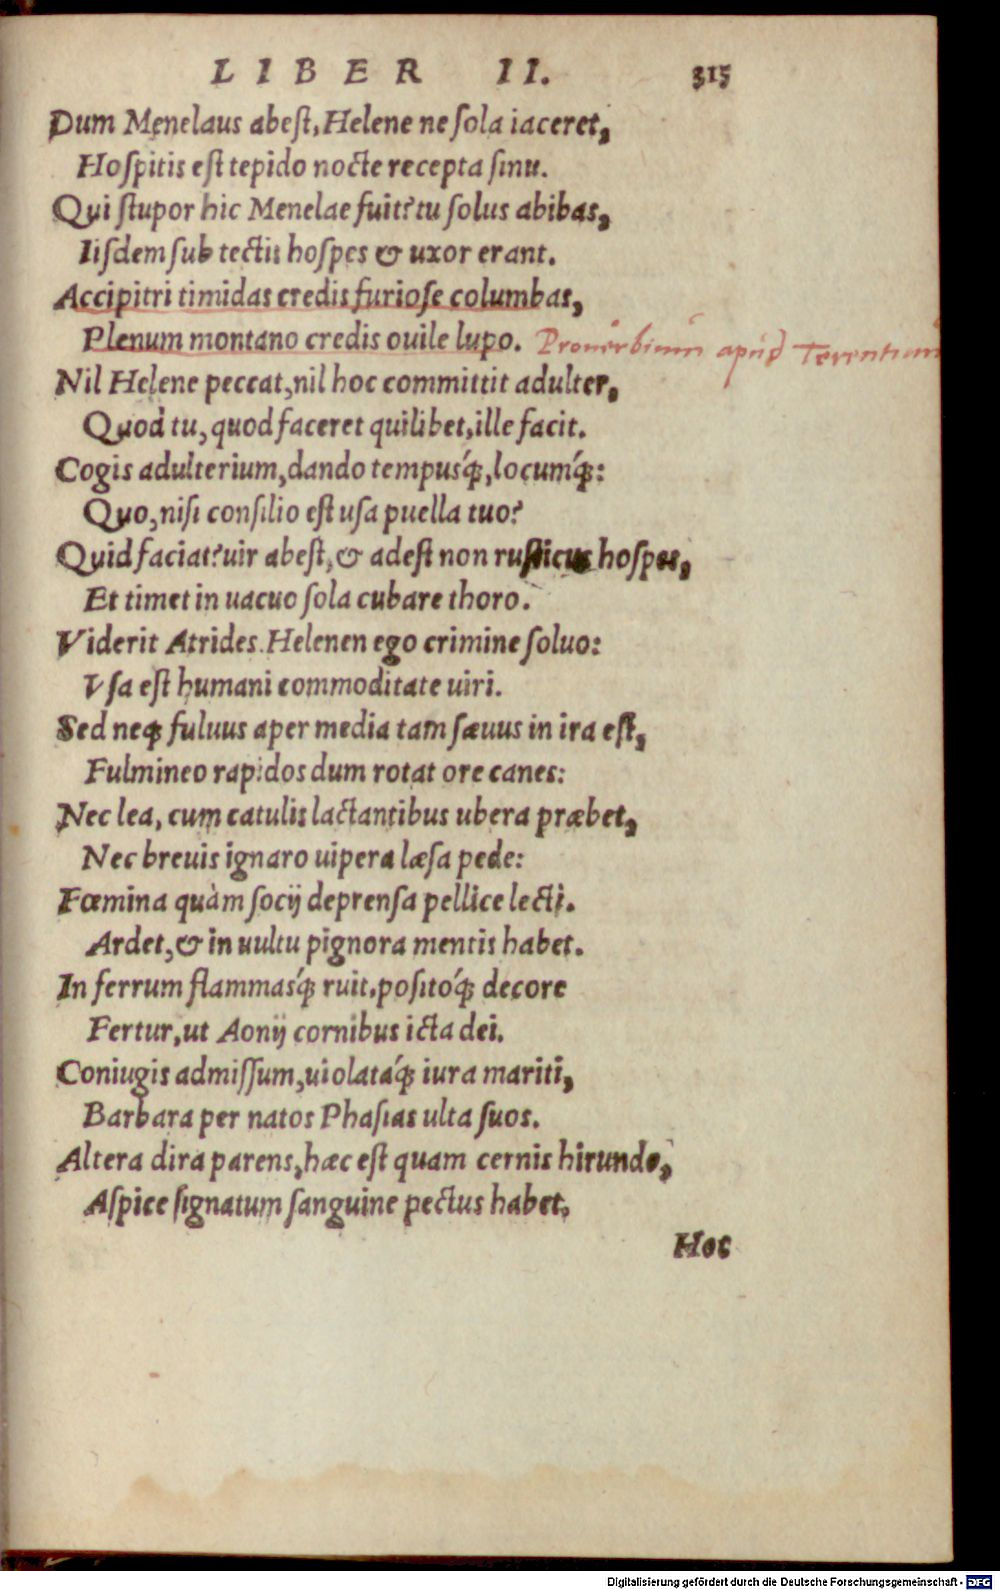 LIBER II. 315
Dum Menelaus abest, Helene ne sola iaceret,
Hospitis est tepido nocte recepta sinu.
Qui stupor hic Menelae fuit? tu solus abibas,
Iisdem sub tectis hospes & uxor erant.
Accipitri timidas credis furiose columbas,
Plenum montano credis ouile lupo. Prouerbium apud Terentium
Nil Helene peccat, nil hoc committit adulter,
Quod tu, quod faceret quilibet, ille facit.
Cogis adulterium, dando tempusq́;, locumq́;:
Quo, nisi consilio est usa puella tuo?
Quid faciat? uir abest, & adest non rusticus hospes,
Et timet in uacuo sola cubare thoro.
Viderit Atrides. Helenen ego crimine soluo:
Vsa est humani commoditate uiri.
Sed neq; fuluus aper media tam sæuus in ira est,
Fulmineo rapidos dum rotat ore canes:
Nec lea, cum catulis lactantibus ubera præbet,
Nec breuis ignaro uipera læsa pede:
Fœmina quàm socij deprensa pellice lecti.
Ardet, & in uultu pignora mentis habet.
In ferrum flammasq́; ruit, positoq́; decore
Fertur, ut Aonij cornibus icta dei.
Coniugis admissum, uiolataq́; iura mariti,
Barbara per natos Phasias ulta suos.
Altera dira parens, hæc est quam cernis hirundo,
Aspice signatum sanguine pectus habet.
Hoc
Digitalisierung gefördert durch die Deutsche Forschungsgemeinschaft - DFG